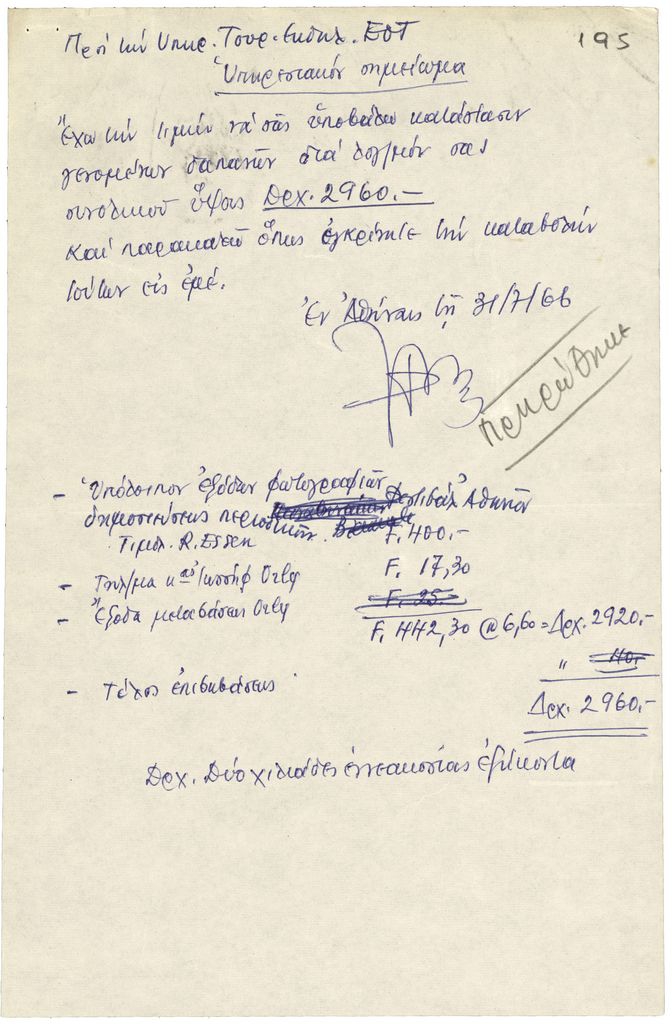 195
Πρὸς τὴν Υπηρ. Τουρ. Εκδηλ. ΕΟΤ
Ὑπηρεσιακόν σημείωμα
Ἔχω τὴν τιμὴν νὰ σᾶς ὑποβάλω κατάστασιν
γενομένων δαπανῶν διὰ λογ/μόν σας
συνολικοῦ ὕψους Δρχ. 2960.—
καὶ παρακαλῶ ὅπως ἐγκρίνητε τὴν καταβολήν
τούτων εἰς ἐμέ.
Ἐν Ἀθήναις τῇ 31/7/66
— Ὑπόλοιπον ἐξόδων φωτογραφιῶν
δημοσιεύσεως περιοδικῶν Φεστιβάλ Ἀθηνῶν
Τιμολ. R. F. 400.—
— Τηλ/μα F. 17,30
— Ἔξοδα μεταβάσεως F. 25.—
F. 442,30 @ 6,60 = Δρχ. 2920.—
— Τέλος ἐπιβιβάσεως " 40.—
Δρχ. 2960.—
Δρχ. Δύο χιλιάδες ἐννεακοσίας ἑξήκοντα